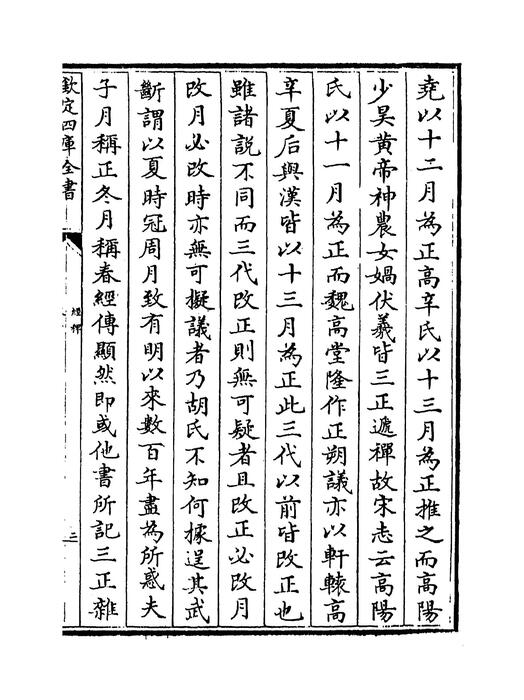 堯以十二月為正高辛氏以十三月為正推之而高陽
少昊黄帝神農女媧伏羲皆三正遞禪故宋志云高陽
氏以十一月為正而魏高堂隆作正朔議亦以軒轅高
辛夏后與漢皆以十三月為正此三代以前皆改正也
雖諸説不同而三代改正則無可疑者且改正必改月
改月必改時亦無可擬議者乃胡氏不知何據逞其武
斷謂以夏時冠周月致有明以來數百年盡為所惑夫
子月稱正冬月稱春經傳顯然即或他書所記三正雜
欽定四庫全書
二